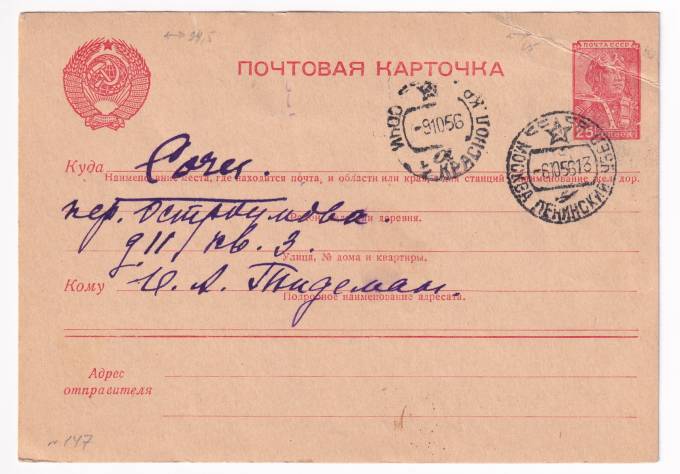 39,5
25
ПОЧТА СССР
ПОЧТОВАЯ КАРТОЧКА
25
СОЧИ КРАСНОД. КР.
-9 10 56
МОСКВА ЛЕНИНСКИЙ
-6 10 56 13
Куда Сочи.
Наименование места, где находится почта, и области или края, станций наименование жел. дор.
пер. Островского
деревня.
д 11/ кв. 3.
Улица, № дома и квартиры.
Кому И. А. Тидеман.
Подробное наименование адресата.
Адрес
отправителя
147